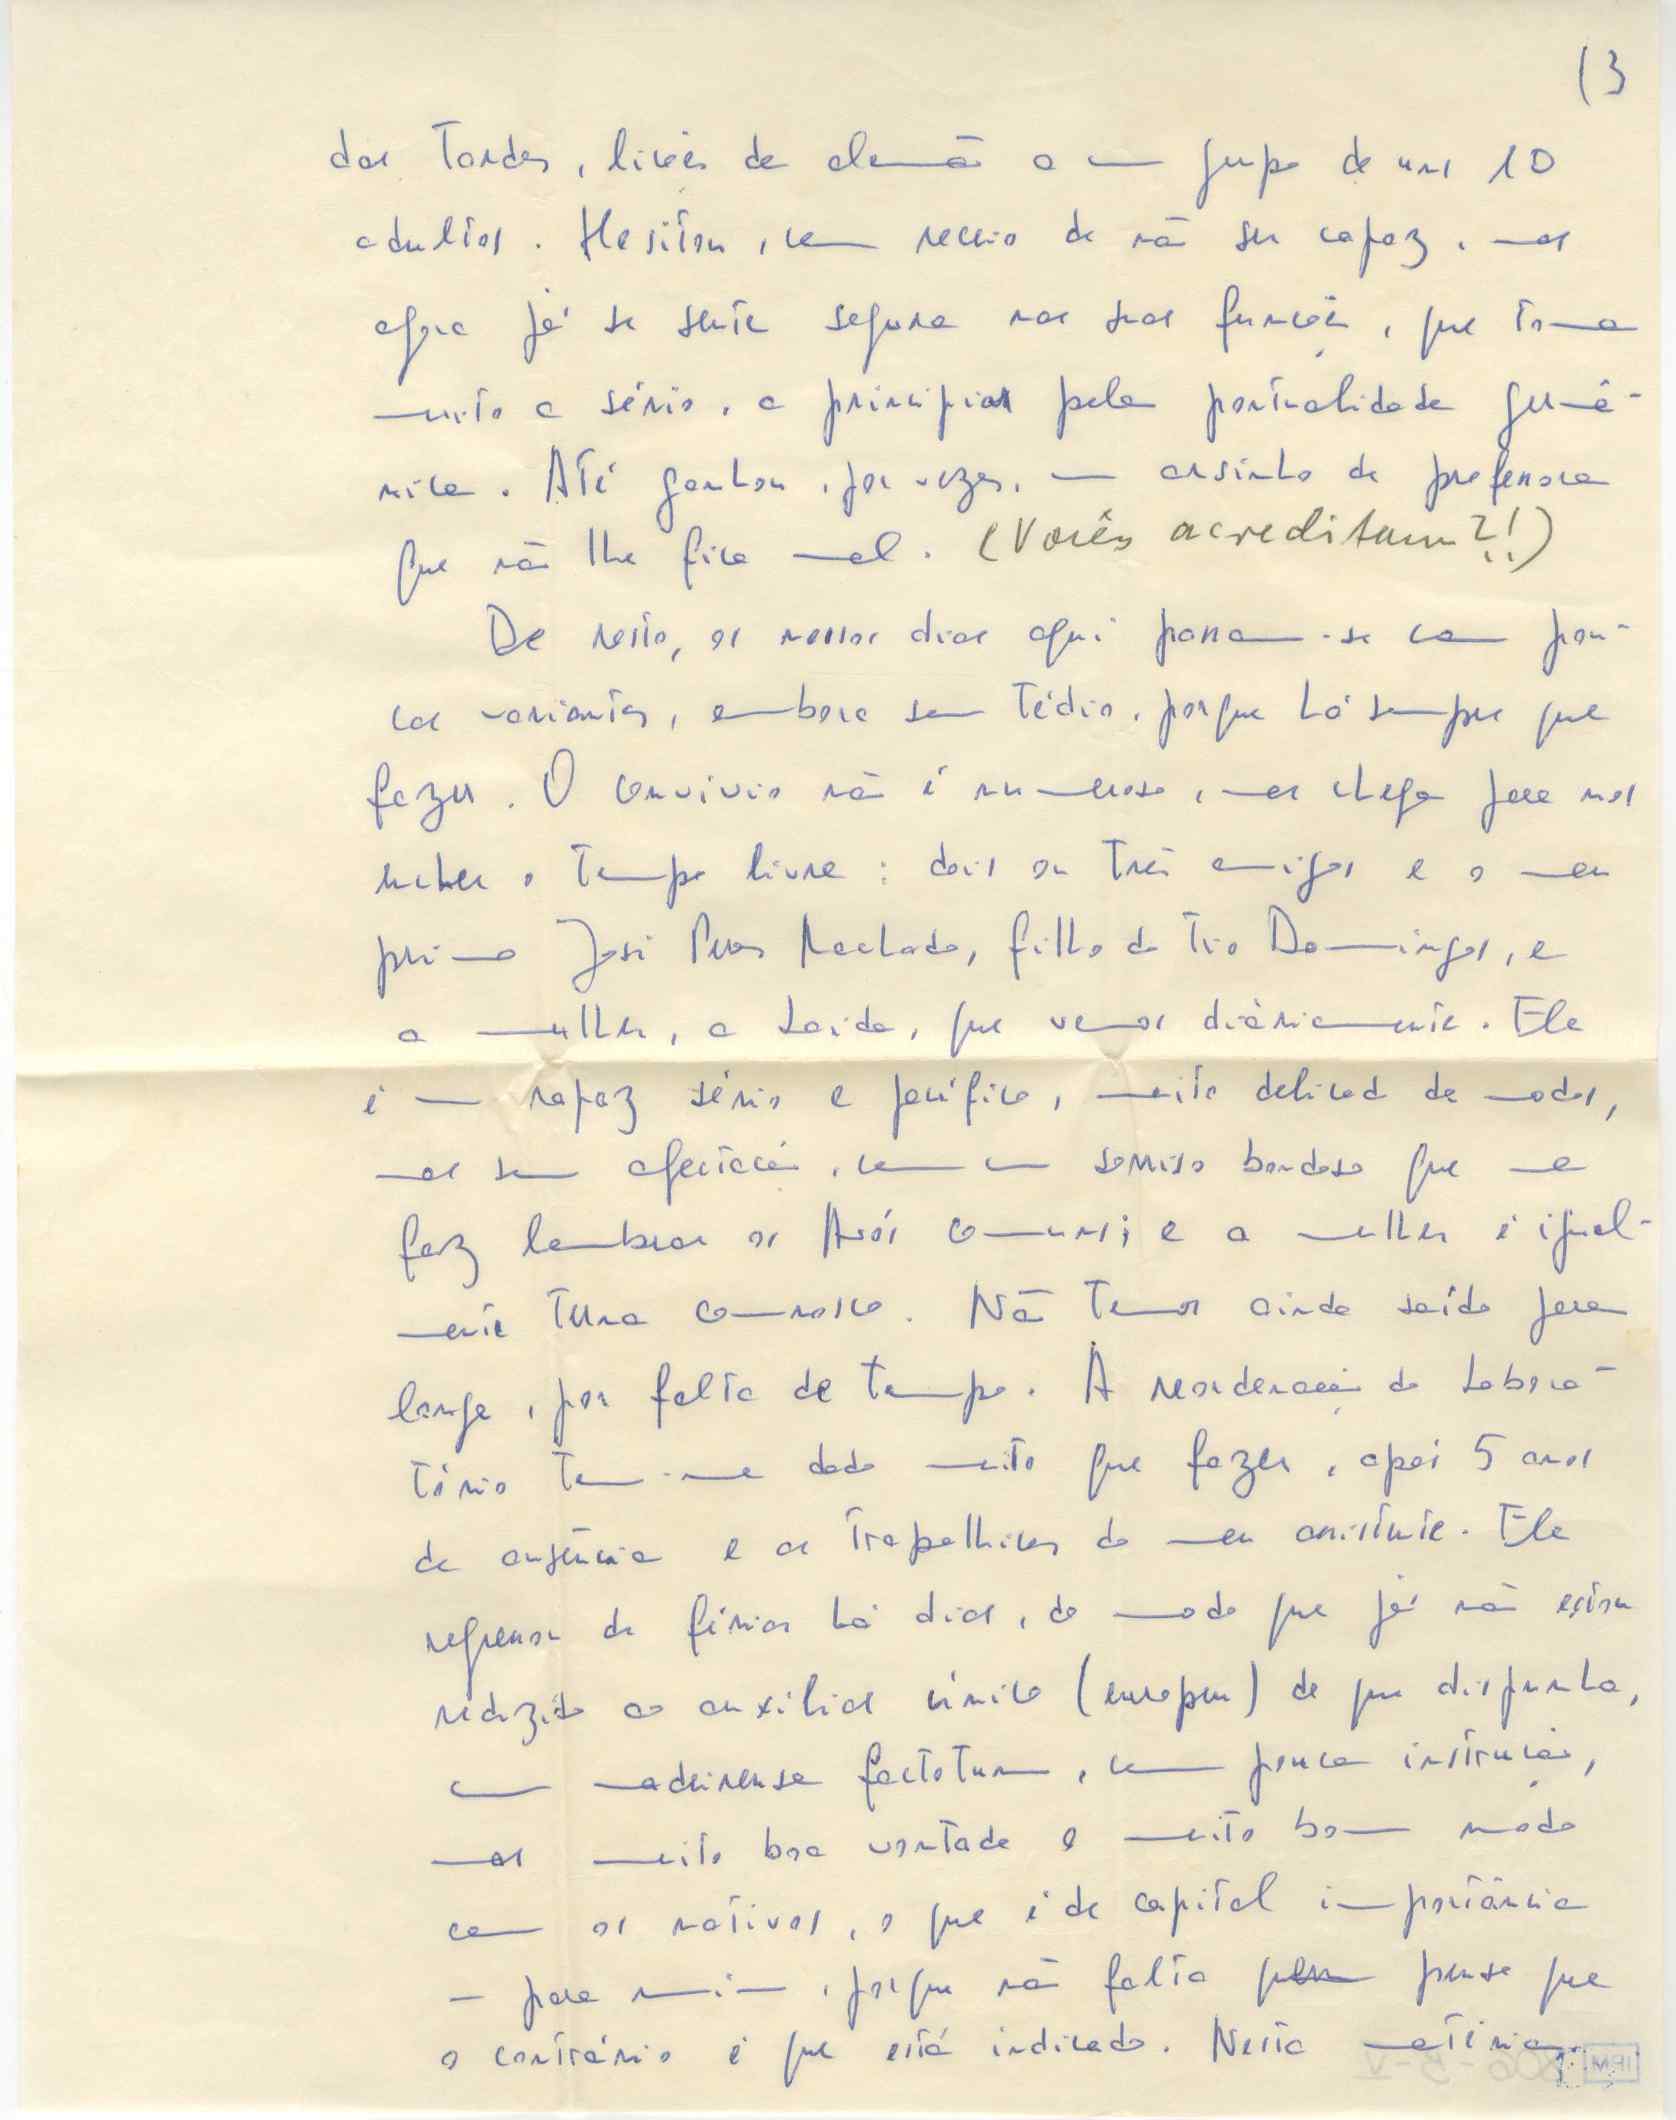 (3
das tardes, lições de alemão a um grupo de uns 10
adultos. Hesitou, com receio de não ser capaz, mas
agora já se sente segura nas suas funções, que toma
muito a sério, a principiar pela pontualidade germâ-
nica. Até ganhou, por vezes, um arzinho de professora
que não lhe fica mal. (Vocês acreditam?!)
De resto, os nossos dias aqui passam-se com pou-
cas variantes, embora sem tédio, porque há sempre que
fazer. O convívio não é numeroso, mas chega para nos
encher o tempo livre: dois ou três amigos e o meu
primo José Machado, filho do Tio Domingos, e
a mulher, a Saida, que vemos diàriamente. Ele
é um rapaz sério e pacífico, muito delicado de modos,
mas sem afectação, com um sorriso bondoso que me
faz lembrar os Avós comuns; e a mulher é igual-
mente terna connosco. Não temos ainda saído para
longe, por falta de tempo. A reordenação do Labora-
tório tem-me dado muito que fazer, após 5 anos
de ausência e as trapalhices do meu assistente. Ele
regressou de férias há dias, de modo que já não estou
reduzido ao auxiliar único (europeu) de que dispunha,
um madeirense factotum, com pouca instrução,
mas muito boa vontade e muito bom modo
com os nativos, o que é de capital importância
— para mim, porque não falta quem pense que
o contrário é que está indicado. Nesta matéria